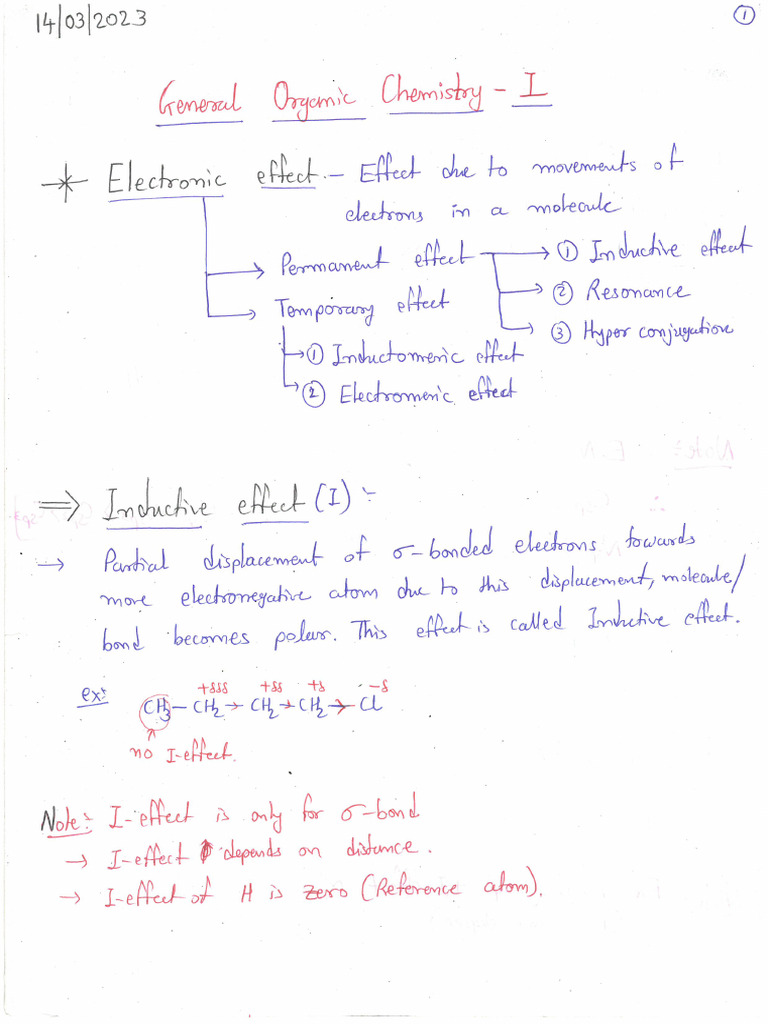 14/03/2023
①
General Organic Chemistry - I
* Electronic effect :- Effect due to movements of
electrons in a molecule
→ Permanent effect → ① Inductive effect
→ ② Resonance
→ Temporary effect
→ ③ Hyper conjugation
→ ① Inductomeric effect
→ ② Electromeric effect
⇒ Inductive effect (I) :-
→ Partial displacement of σ-bonded electrons towards
more electronegative atom due to this displacement, molecule/
bond becomes polar. This effect is called Inductive effect.
+δδδ +δδ +δ -δ
ex: CH3 - CH2 → CH2 → CH2 → Cl
no I-effect.
Note:- I-effect is only for σ-bond
→ I-effect depends on distance.
→ I-effect of H is zero (Reference atom).